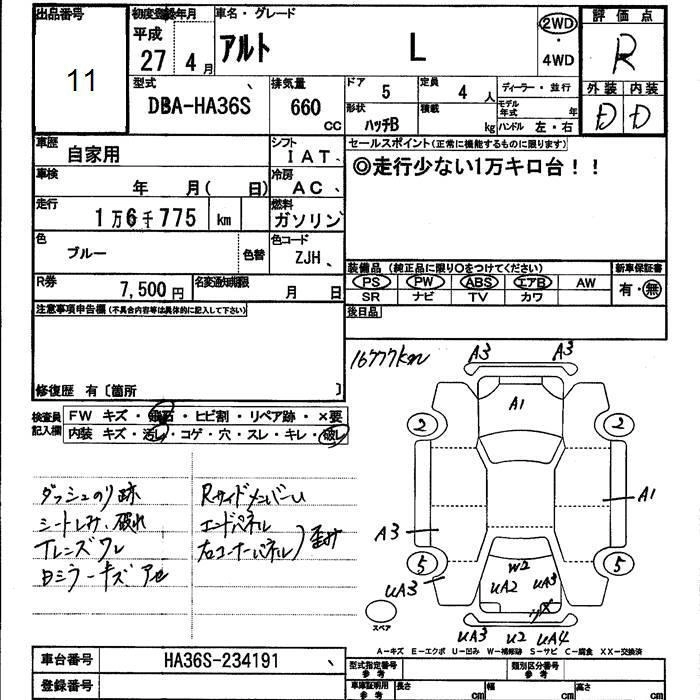 出品番号 11
初度登録年月 平成 27 年 4 月
車名・グレード アルト L
2WD・4WD
評価点 R
外装 D 内装 D
型式 DBA-HA36S
排気量 660 CC
ドア 5
定員 4 人
形状 ハッチB
積載 kg
ディーラー・並行
モデル年式 年
ハンドル 左・右
車歴 自家用
シフト IAT
車検 年 月( 日)
冷房 AC
走行 1万6千775 km
燃料 ガソリン
色 ブルー 色替
色コード ZJH
R券 7,500円
名変通知期限 月 日
セールスポイント(正常に機能するものに限ります)
◎走行少ない1万キロ台!!
装備品(純正品に限り○をつけてください)
PS PW ABS エアB AW
SR ナビ TV カワ
新車保証書 有・無
後日品
注意事項申告欄(不具合内容等は具体的に記入して下さい)
修復歴 有〔箇所 〕
検査員記入欄
FW キズ・飛石・ヒビ割・リペア跡・×要
内装 キズ・汚れ・コゲ・穴・スレ・キレ・破れ
ダッシュのり跡
シートしみ、破れ
Tレンズワレ
Rサイドメンバーu
エンドパネル
右コーナーパネル
16777km
A3 A3
A1
2 2
A1
A3
5 5
W2
UA2 UA3
UA3
UA3 U2 UA4
スペア
A-キズ E-エクボ U-凹み W-補修跡 S-サビ C-腐食 XX-交換済
車台番号 HA36S-234191
登録番号
型式指定番号 参考
類別区分番号 参考
車庫証明用 参考 長さ cm 幅 cm 高さ cm